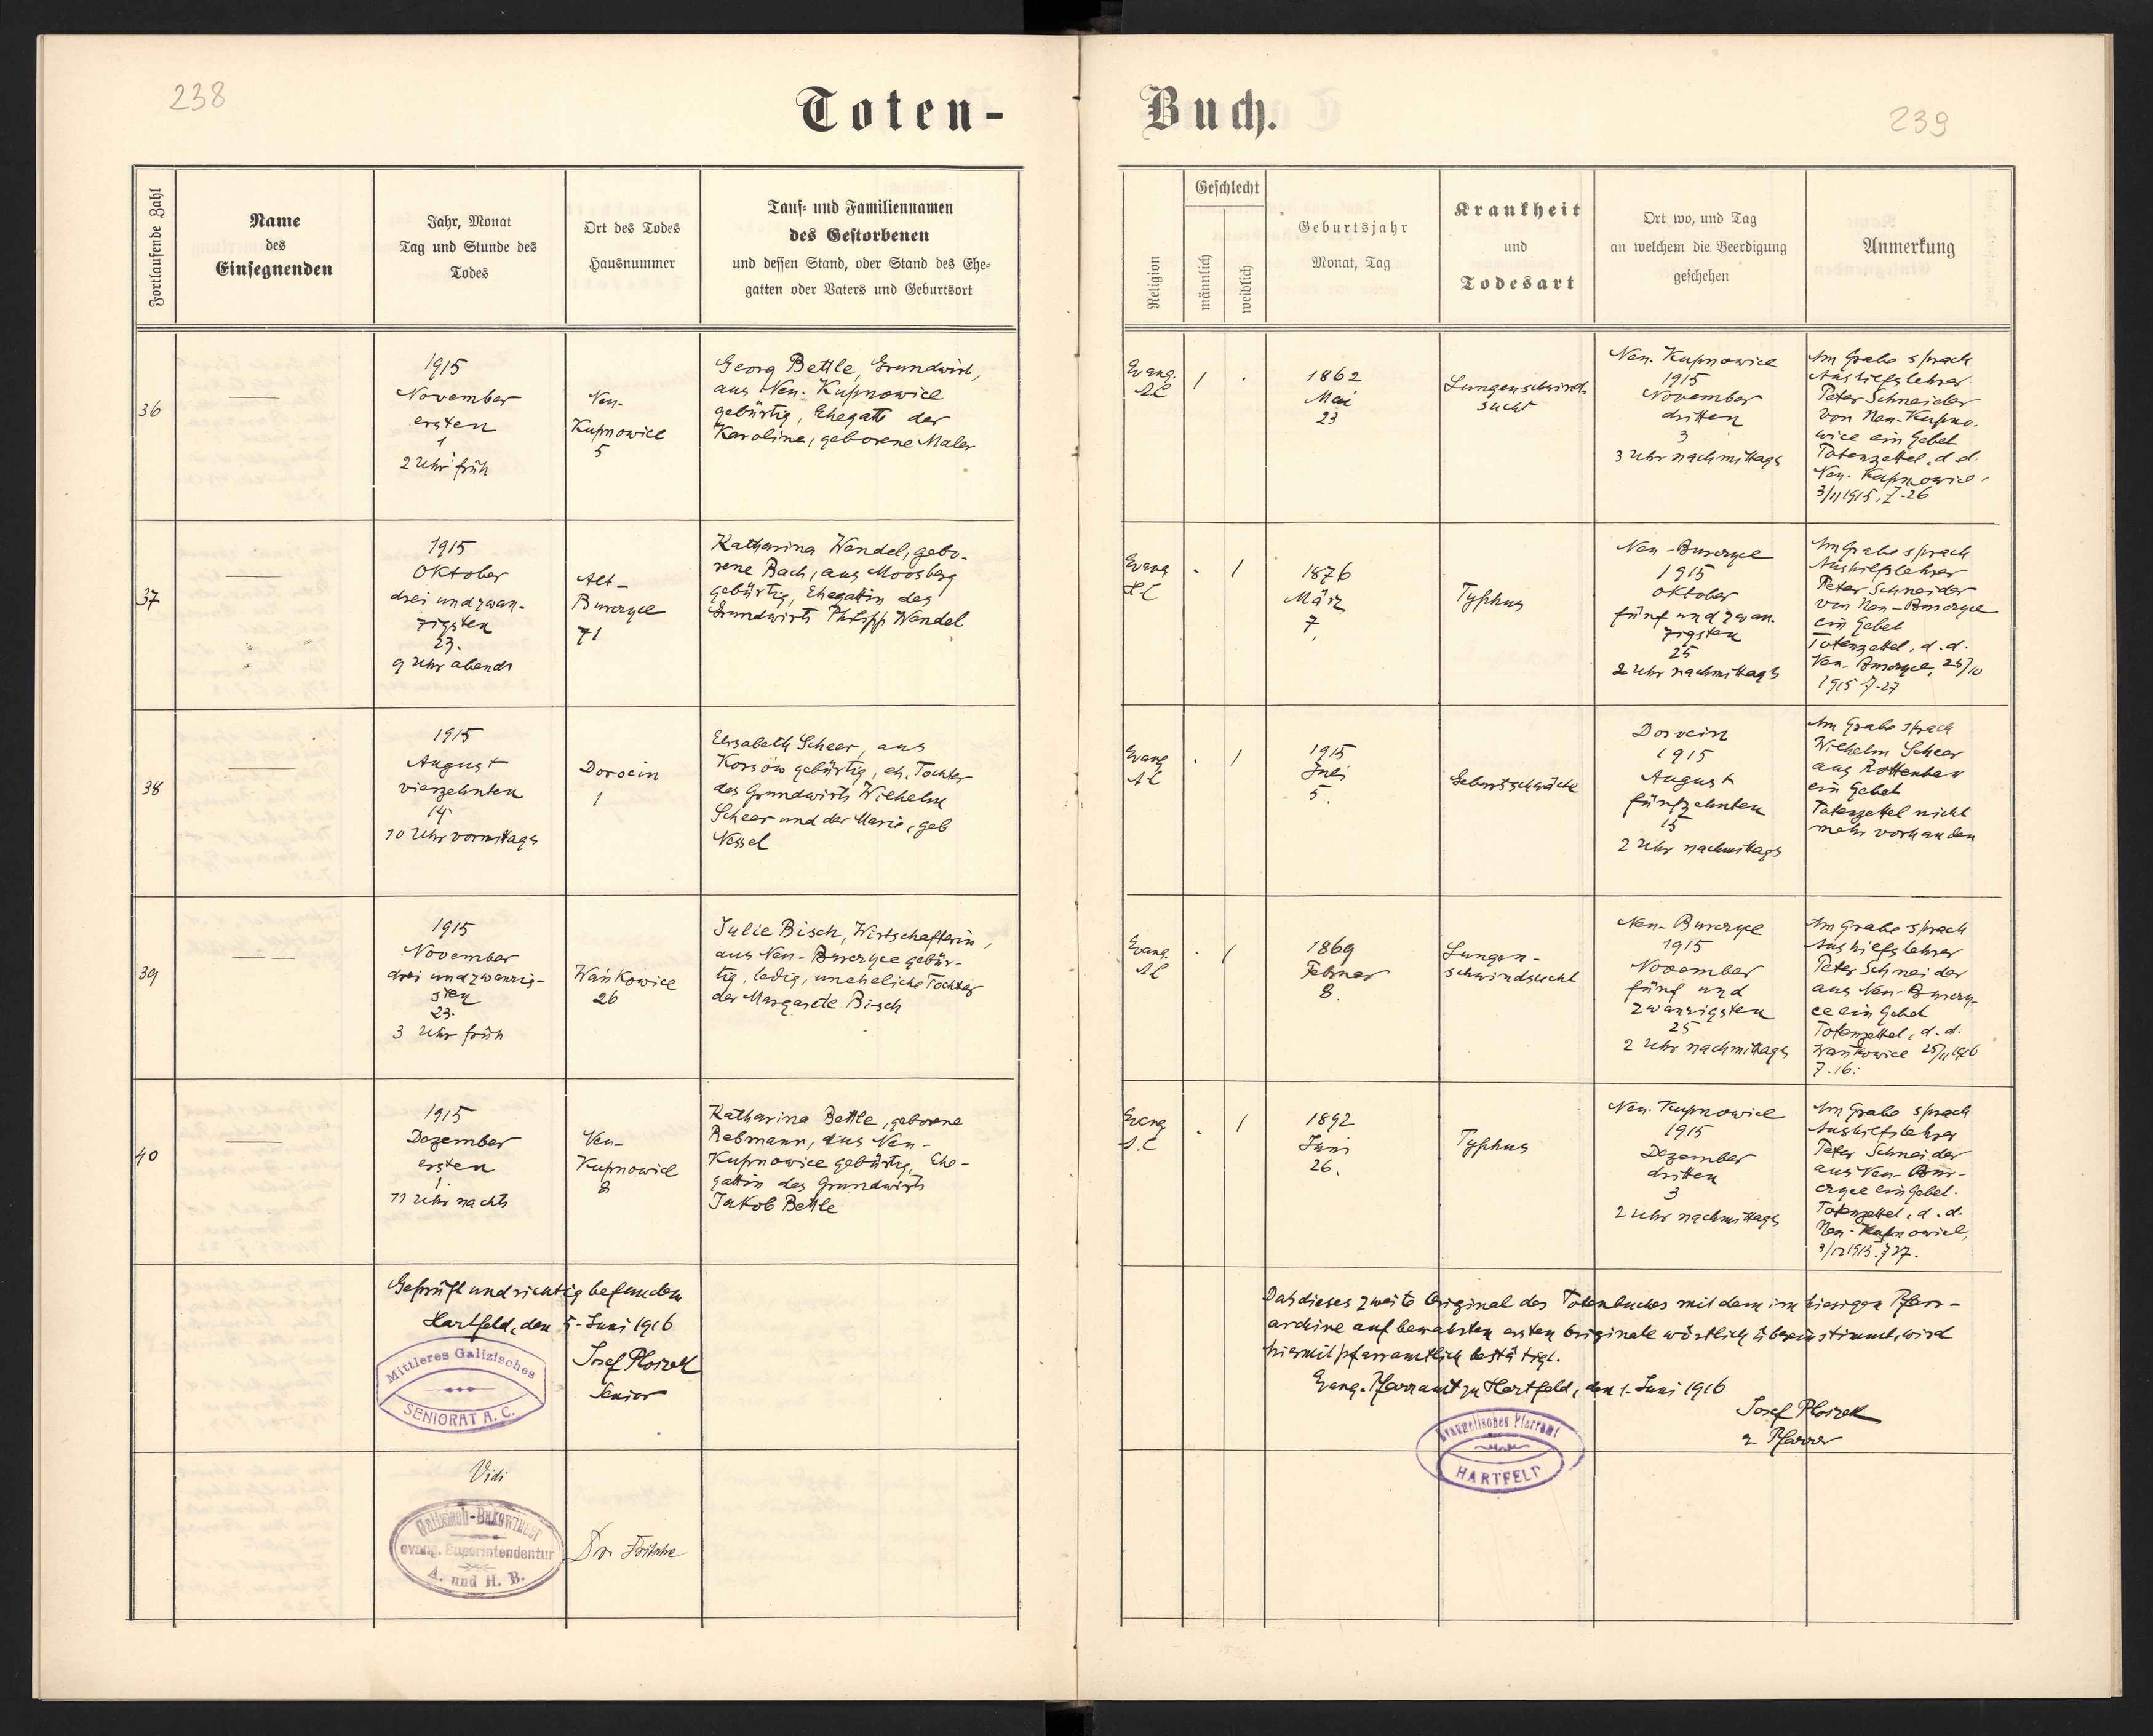 238
Toten-
Fortlaufende Zahl
Name
des
Einsegnenden
Jahr, Monat
Tag und Stunde des
Todes
Ort des Todes
Hausnummer
Tauf- und Familiennamen
des Gestorbenen
und dessen Stand, oder Stand des Ehe-
gatten oder Vaters und Geburtsort
36
1915
November
ersten
1
2 Uhr früh
Neu-
Kupnowice
5
Georg Bettle, Grundwirt,
aus Neu-Kupnowice
gebürtig, Ehegatte der
Karoline, geborene Maler
37
1915
Oktober
drei und zwan-
zigsten
23.
9 Uhr abends
Alt-
Burczyce
71
Katharina Wendel, gebo-
rene Bach, aus Moosberg
gebürtig, Ehegattin des
Grundwirts Philipp Wendel
38
1915
August
vierzehnten
14.
10 Uhr vormittags
Dorocin
1
Elisabeth Scheer, aus
Korsów gebürtig, eh. Tochter
des Grundwirts Wilhelm
Scheer und der Marie, geb
Nessel
39
1915
November
drei und zwanzig-
sten
23.
3 Uhr früh
Wańkowice
26
Julie Bisch, Wirtschafterin,
aus Neu-Burczyce gebür-
tig, ledig, uneheliche Tochter
der Margarete Bisch
40
1915
Dezember
ersten
1.
11 Uhr nachts
Neu-
Kupnowice
8
Katharina Bettle, geborene
Rebmann, aus Neu-
Kupnowice gebürtig, Ehe-
gattin des Grundwirts
Jakob Bettle
Geprüft und richtig befunden
Hartfeld, den 5. Juni 1916
Mittleres Galizisches
SENIORAT A. C.
Josef Ploszek
Senior
Vidi
Galizisch-Bukowinaer
evang. Superintendentur
A. und H. B.
Dr. Fritsche
Buch.
239
Religion
Geschlecht
männlich
weiblich
Geburtsjahr
Monat, Tag
Krankheit
und
Todesart
Ort wo, und Tag
an welchem die Beerdigung
geschehen
Anmerkung
Evang.
AC
1
.
1862
Mai
23
Lungenschwind
sucht
Neu-Kupnowice
1915
November
dritten
3
3 Uhr nachmittags
Am Grabe sprach
Aushilfslehrer
Peter Schneider
von Neu-Kupno-
wice ein Gebet
Totenzettel, d. d.
Neu-Kupnowice,
3/11 1915, Z. 26
Evang
.
1
1876
März
7.
Typhus
Neu-Burczyce
1915
Oktober
fünf und zwan-
zigsten
25
2 Uhr nachmittags
Am Grabe sprach
Aushilfslehrer
Peter Schneider
von Neu-Burczyce
ein Gebet
Totenzettel, d. d.
Neu-Burczyce, 25/10
1915 Z. 27
Evang
AC
.
1
1915
Juli
5.
Geburtsschwäche
Dorocin
1915
August
fünfzehnten
15
2 Uhr nachmittags
Am Grabe sprach
Wilhelm Scheer
aus Rottenhan
ein Gebet
Totenzettel nicht
mehr vorhanden
Evang.
AC
.
1
1869
Februar
8.
Lungen-
schwindsucht
Neu-Burczyce
1915
November
fünf und
zwanzigsten
25
2 Uhr nachmittags
Am Grabe sprach
Aushilfslehrer
Peter Schneider
aus Neu-Burczy-
ce ein Gebet
Totenzettel, d. d.
Wańkowice 25/11 1916
Z. 16.
Evang
A.C
.
1
1892
Juni
26.
Typhus
Neu-Kupnowice
1915
Dezember
dritten
3
2 Uhr nachmittags
Am Grabe sprach
Aushilfslehrer
Peter Schneider
aus Neu-Bur-
czyce ein Gebet.
Totenzettel, d. d.
Neu-Kupnowice,
3/12 1915. Z 27.
Daß dieses zweite Original des Totenbuches mit dem im hiesigen Pfarr-
archive aufbewahrten ersten Originale wörtlich übereinstimmt, wird
hiermit pfarramtlich bestätigt.
Evang. Pfarramt zu Hartfeld, den 1. Juni 1916
Josef Ploszek
Pfarrer
Evangelisches Pfarramt
HARTFELD